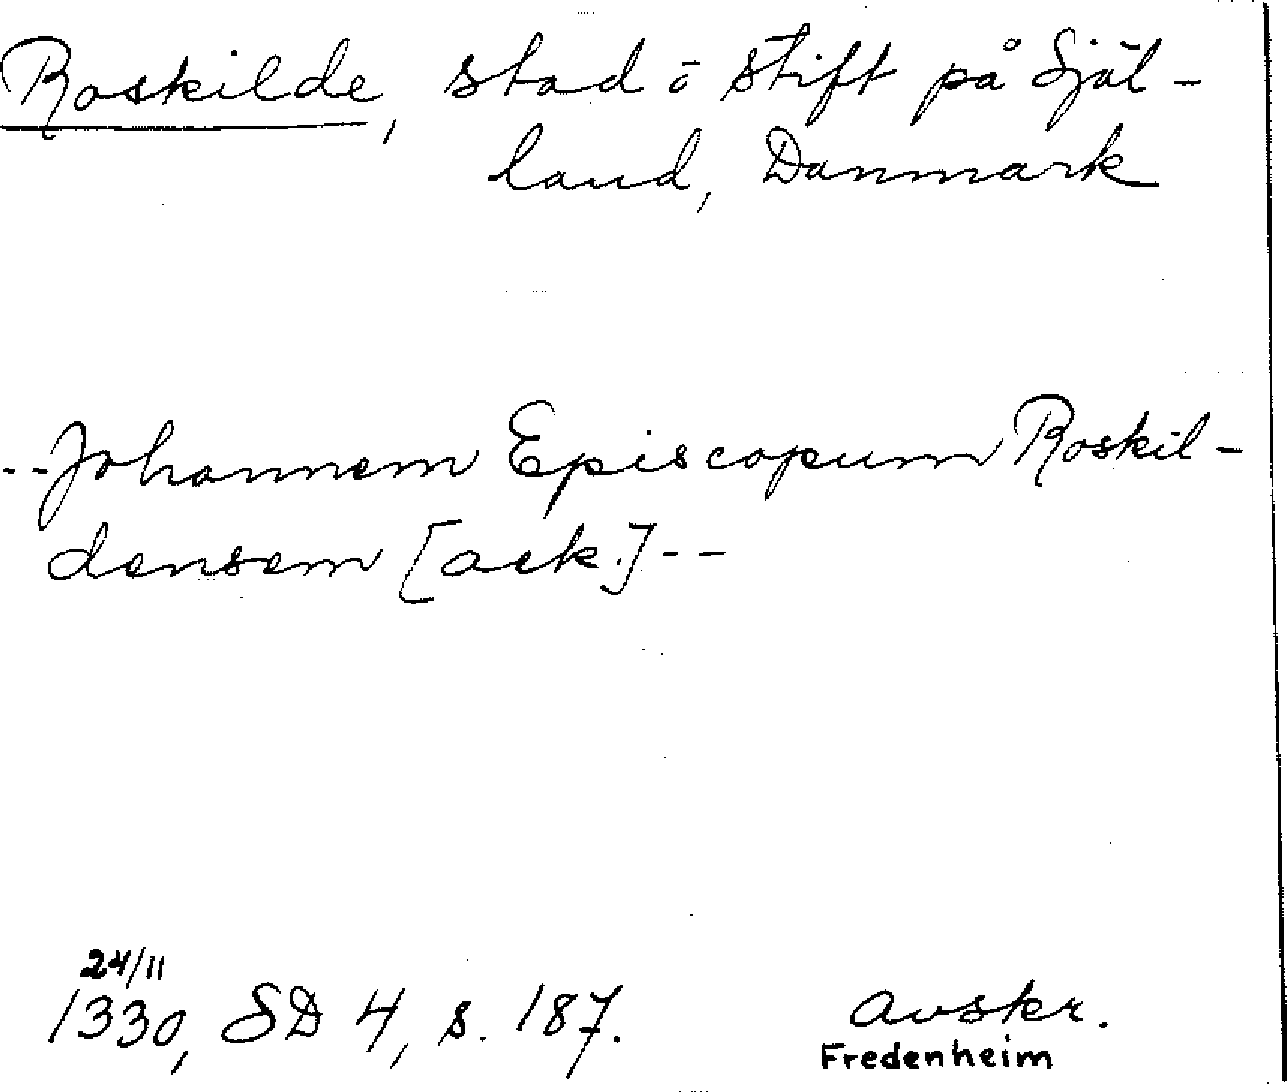 Roskilde, stad o stift på Själ-
land, Danmark
--Johannem Episcopum Roskil-
densem [ack.]--
24/11
1330, SD 4, s. 187.
avskr.
Fredenheim